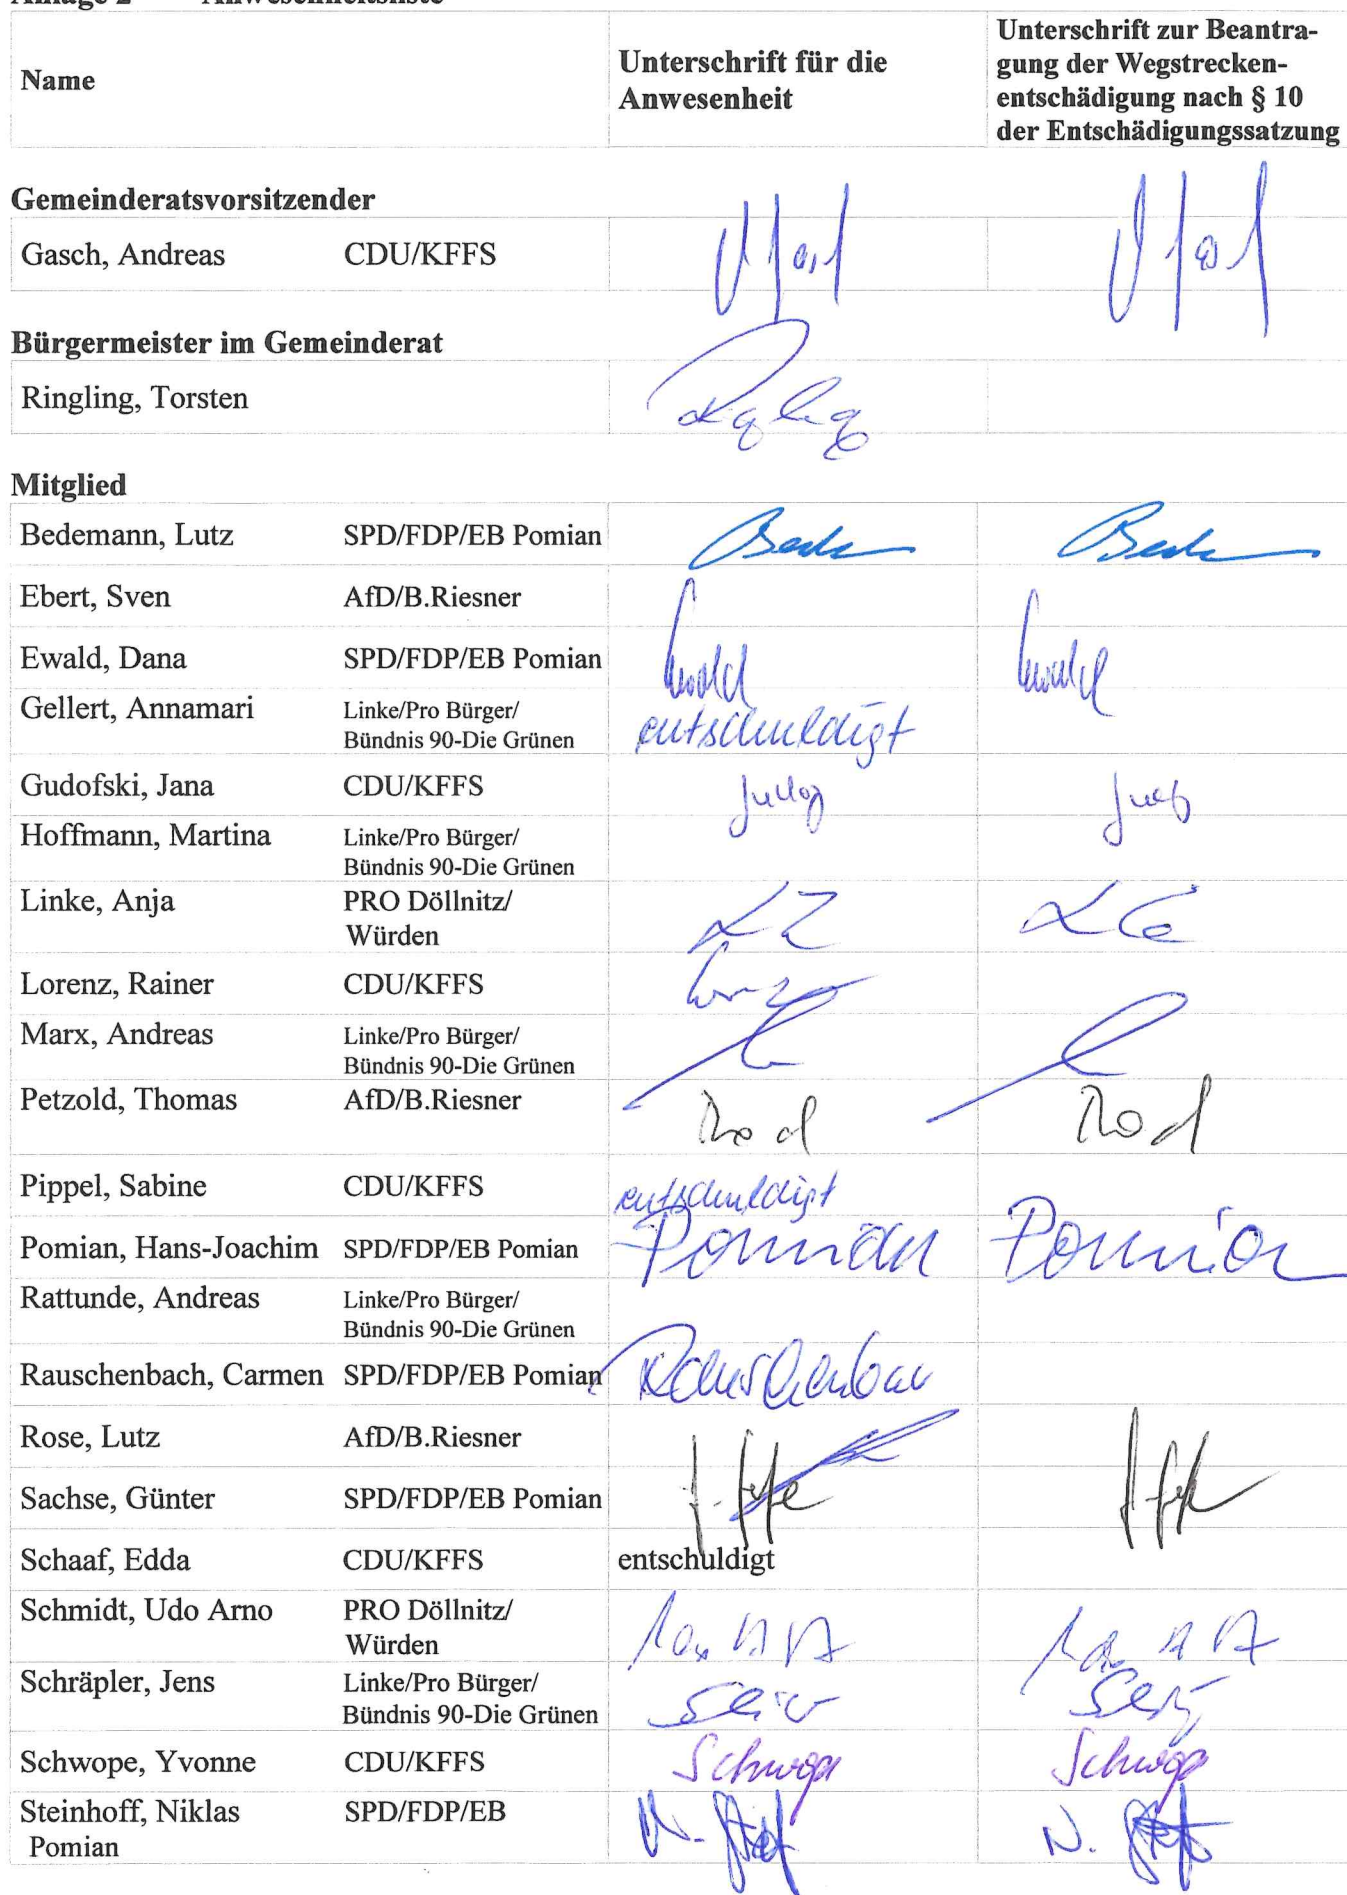 Anlage 2 Anwesenheitsliste
Name
Unterschrift für die
Anwesenheit
Unterschrift zur Beantra-
gung der Wegstrecken-
entschädigung nach § 10
der Entschädigungssatzung
Gemeinderatsvorsitzender
Gasch, Andreas CDU/KFFS
Bürgermeister im Gemeinderat
Ringling, Torsten
Mitglied
Bedemann, Lutz SPD/FDP/EB Pomian
Ebert, Sven AfD/B.Riesner
Ewald, Dana SPD/FDP/EB Pomian Ewald Ewald
Gellert, Annamari Linke/Pro Bürger/
Bündnis 90-Die Grünen entschuldigt
Gudofski, Jana CDU/KFFS
Hoffmann, Martina Linke/Pro Bürger/
Bündnis 90-Die Grünen
Linke, Anja PRO Döllnitz/
Würden
Lorenz, Rainer CDU/KFFS
Marx, Andreas Linke/Pro Bürger/
Bündnis 90-Die Grünen
Petzold, Thomas AfD/B.Riesner
Pippel, Sabine CDU/KFFS entschuldigt
Pomian, Hans-Joachim SPD/FDP/EB Pomian Pomian Pomian
Rattunde, Andreas Linke/Pro Bürger/
Bündnis 90-Die Grünen
Rauschenbach, Carmen SPD/FDP/EB Pomian
Rose, Lutz AfD/B.Riesner
Sachse, Günter SPD/FDP/EB Pomian
Schaaf, Edda CDU/KFFS entschuldigt
Schmidt, Udo Arno PRO Döllnitz/
Würden
Schräpler, Jens Linke/Pro Bürger/
Bündnis 90-Die Grünen
Schwope, Yvonne CDU/KFFS Schwope Schwope
Steinhoff, Niklas SPD/FDP/EB
Pomian